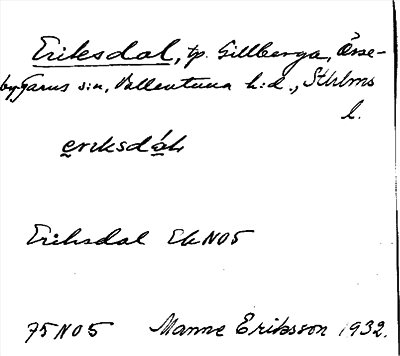 Eriksdal, tp. Gillberga, Össe-
by-Garns s:n, Vallentuna h:d., Sthlms
l.
eriksdál
Eriksdal Ek NO5
75 NO5 Manne Eriksson 1932.